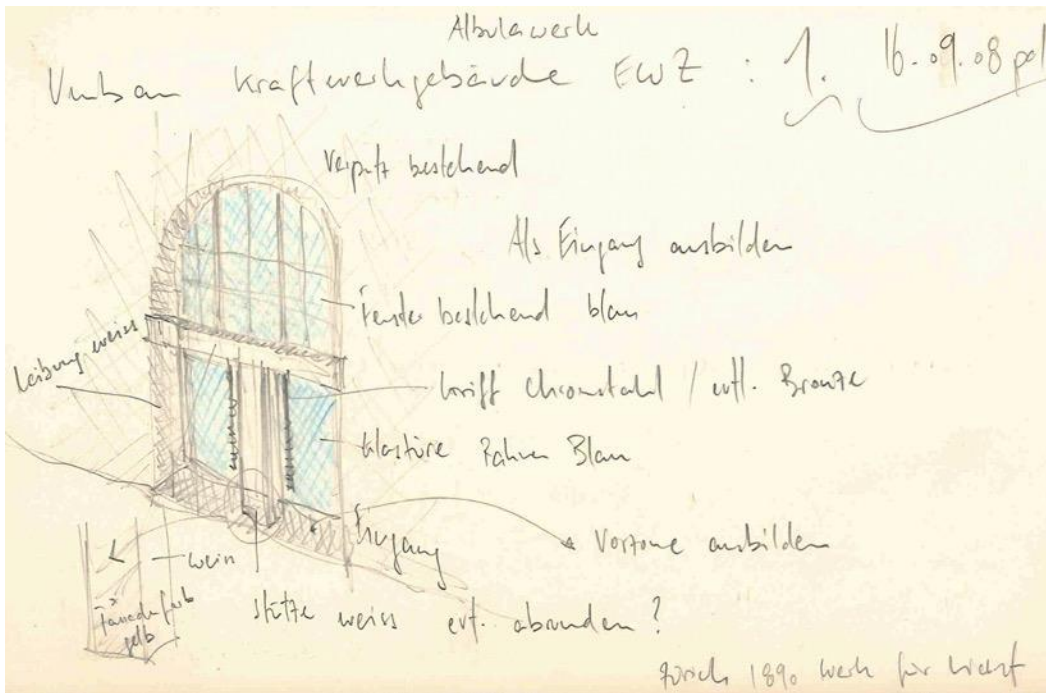 Albulawerk
Umbau Kraftwerkgebäude EWZ : 1. 16.09.08 pol
Verputz bestehend
Als Eingang ausbilden
Fenster bestehend blau
Leibung weiss
Griff Chromstahl / evtl. Bronze
Glastüre Rahmen Blau
Eingang
Vorzone ausbilden
weiss
Stütze weiss evt. abrunden ?
Fassadenfarb
gelb
Zürich 1890 Werk für Licht